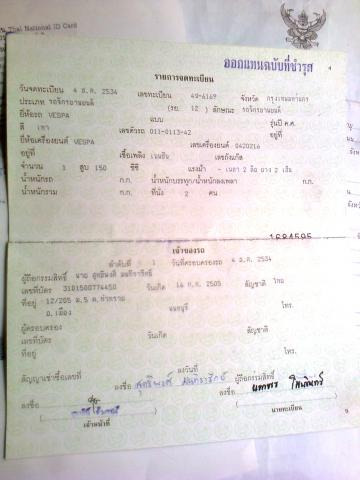 Thai National ID Card
ออกแทนฉบับที่ชำรุด
4
รายการจดทะเบียน
วันจดทะเบียน 4 ธ.ค. 2534 เลขทะเบียน 4ข-4169 จังหวัด กรุงเทพมหานคร
ประเภท รถจักรยานยนต์ (รย. 12 ) ลักษณะ รถจักรยานยนต์
ยี่ห้อรถ VESPA แบบ รุ่นปี ค.ศ.
สี เทา เลขตัวรถ 011-0113-42 อยู่ที่
ยี่ห้อเครื่องยนต์ VESPA เลขเครื่องยนต์ 0420216
อยู่ที่ เชื้อเพลิง เบนซิน เลขถังแก๊ส
จำนวน 1 สูบ 150 ซีซี แรงม้า - เพลา 2 ล้อ ยาง 2 เส้น
น้ำหนักรถ ก.ก. น้ำหนักบรรทุก/น้ำหนักลงเพลา ก.ก.
น้ำหนักรวม ก.ก. ที่นั่ง 2 คน
เจ้าของรถ
ลำดับที่ 1 วันที่ครอบครองรถ 4 ธ.ค. 2534
ผู้ถือกรรมสิทธิ์ นาย สุทธิพงศ์
เลขที่บัตร 3101500774450 วันเกิด 14 ก.ค. 2505 สัญชาติ ไทย
ที่อยู่ 12/205 ม.5 ต.ท่าทราย
อ.เมือง นนทบุรี โทร.
ผู้ครอบครอง
เลขที่บัตร วันเกิด สัญชาติ
ที่อยู่ โทร.
สัญญาเช่าซื้อเลขที่ ลงวันที่
ลงชื่อ สุทธิพงศ์ ผู้ถือกรรมสิทธิ์
ลงชื่อ ลงชื่อ
เจ้าหน้าที่ นายทะเบียน